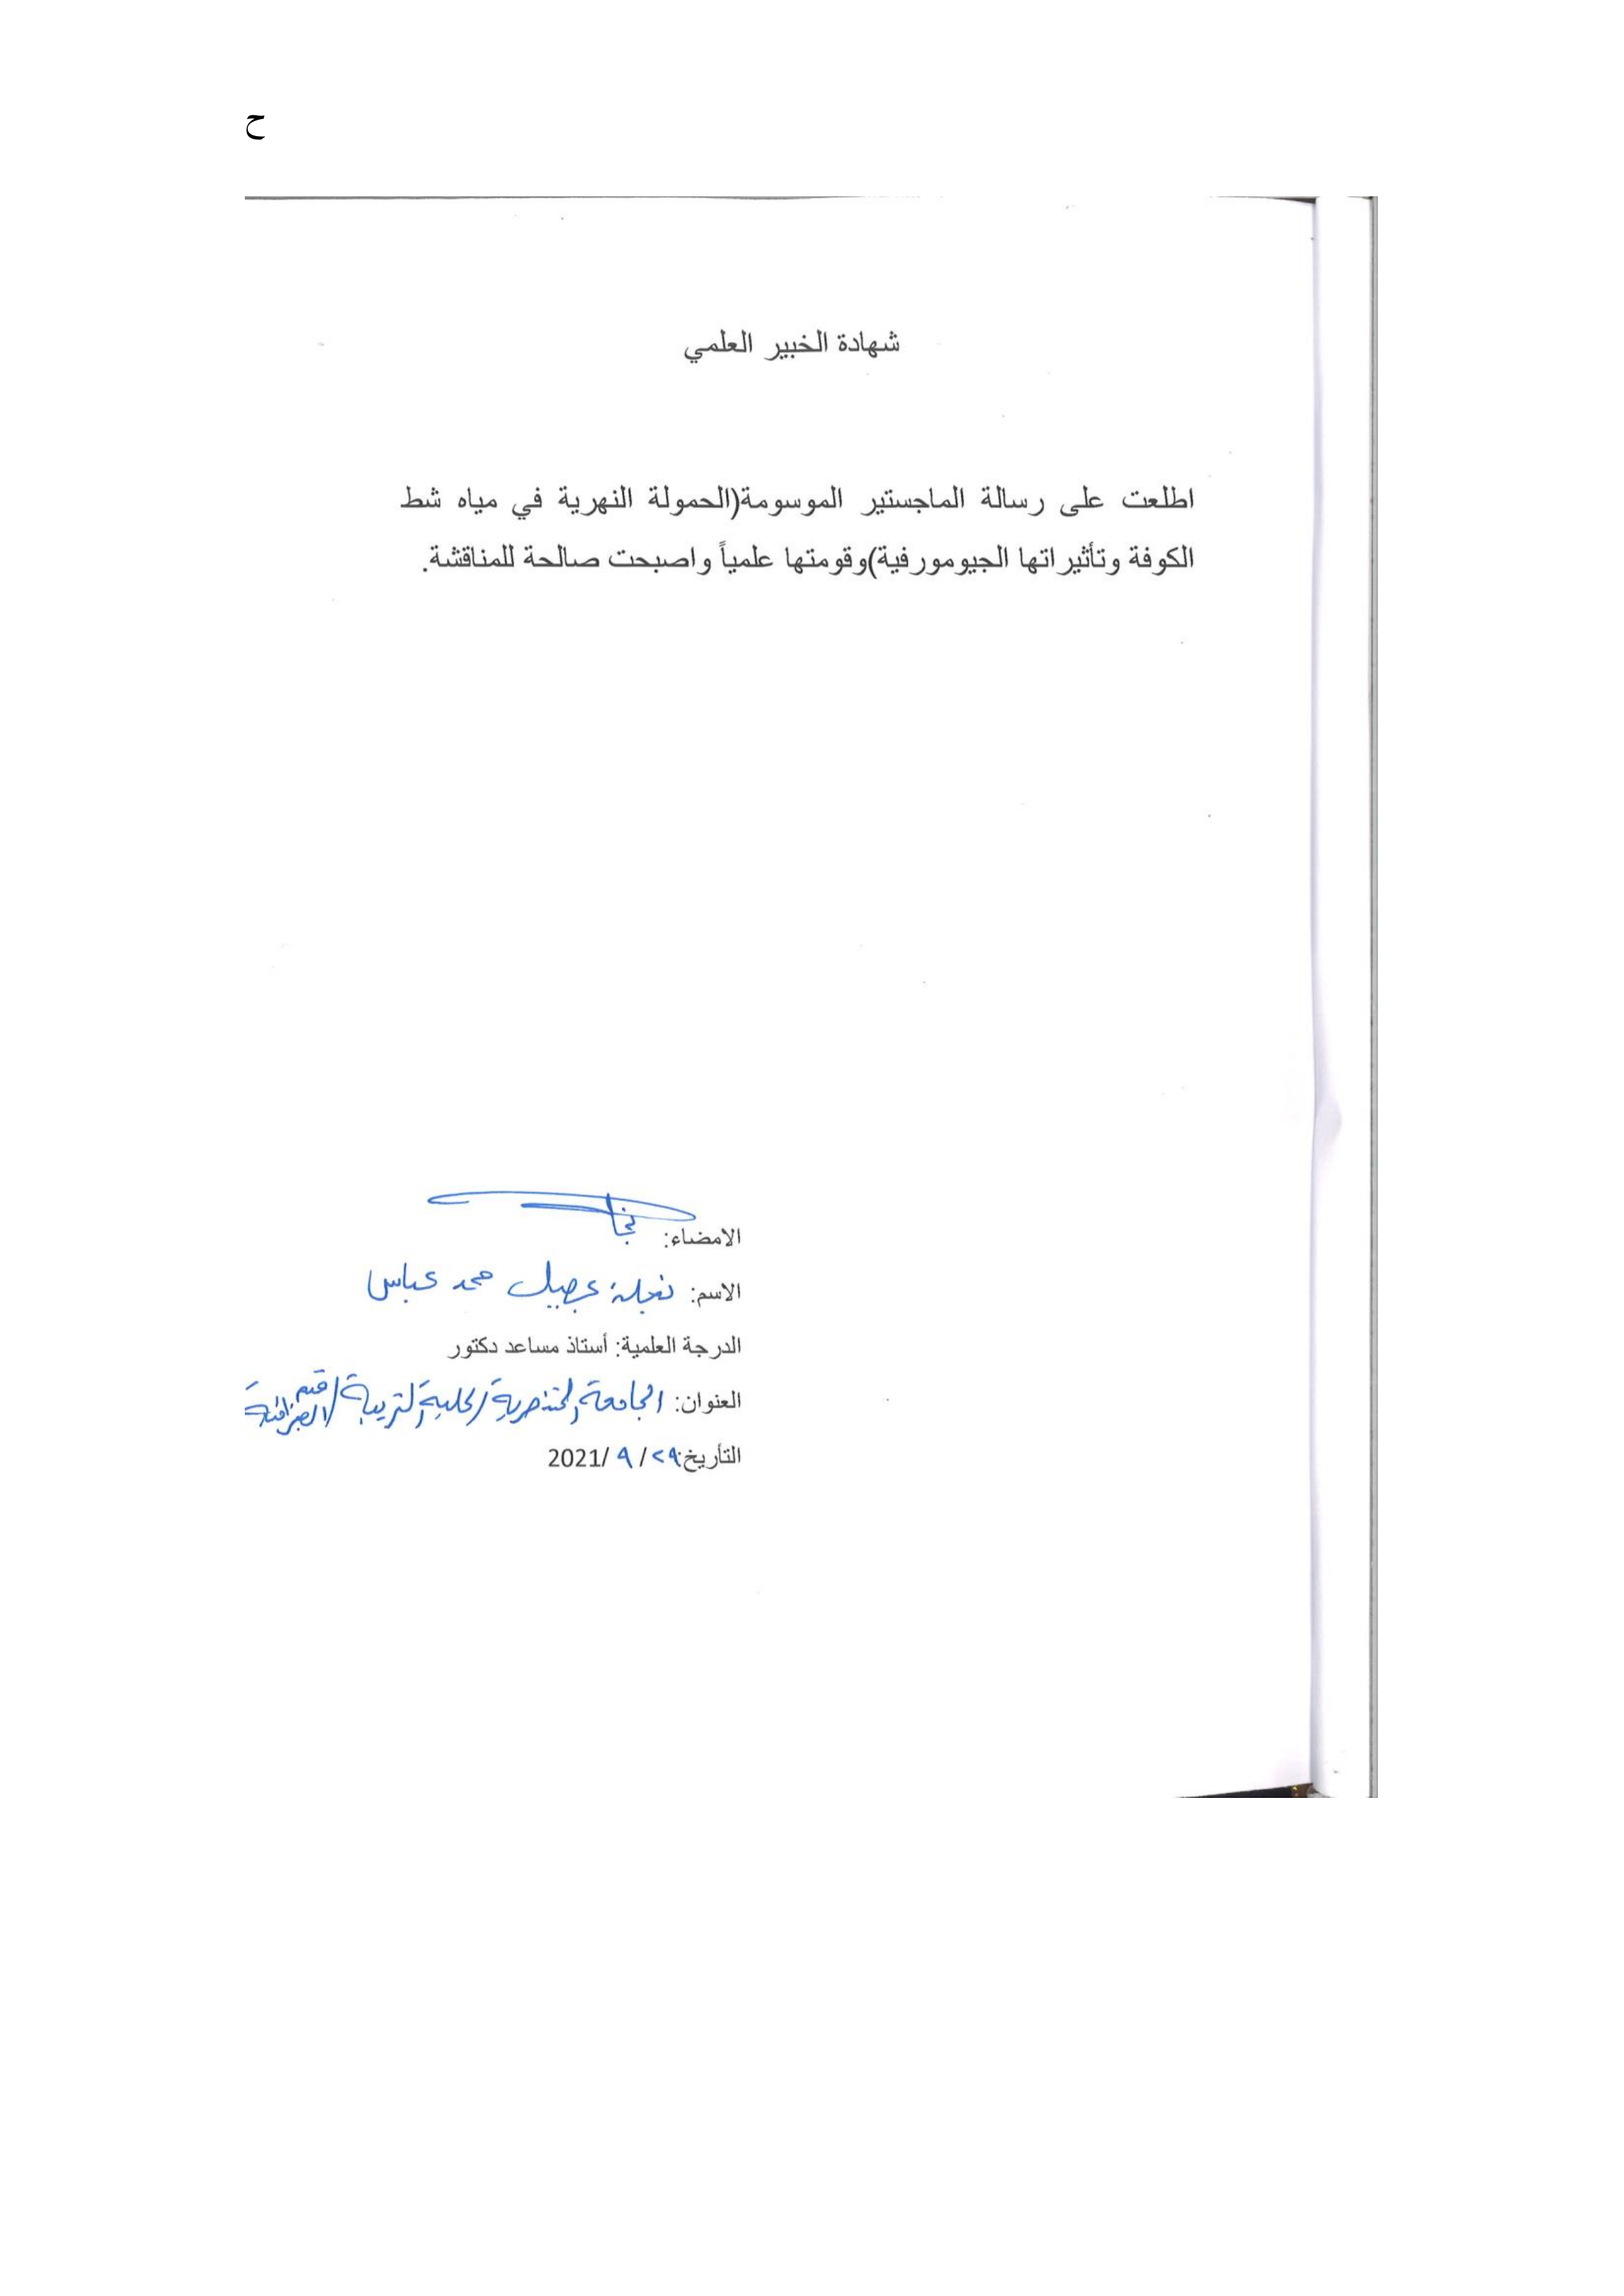 ح
شهادة الخبير العلمي
اطلعت على رسالة الماجستير الموسومة(الحمولة النهرية في مياه شط
الكوفة وتأثيراتها الجيومورفية)وقومتها علمياً واصبحت صالحة للمناقشة.
الامضاء:
الاسم: نجلة عجيل محمد عباس
الدرجة العلمية: أستاذ مساعد دكتور
العنوان: الجامعة المستنصرية/كلية التربية/قسم الجغرافية
التأريخ:٢٩/ ٩ /2021